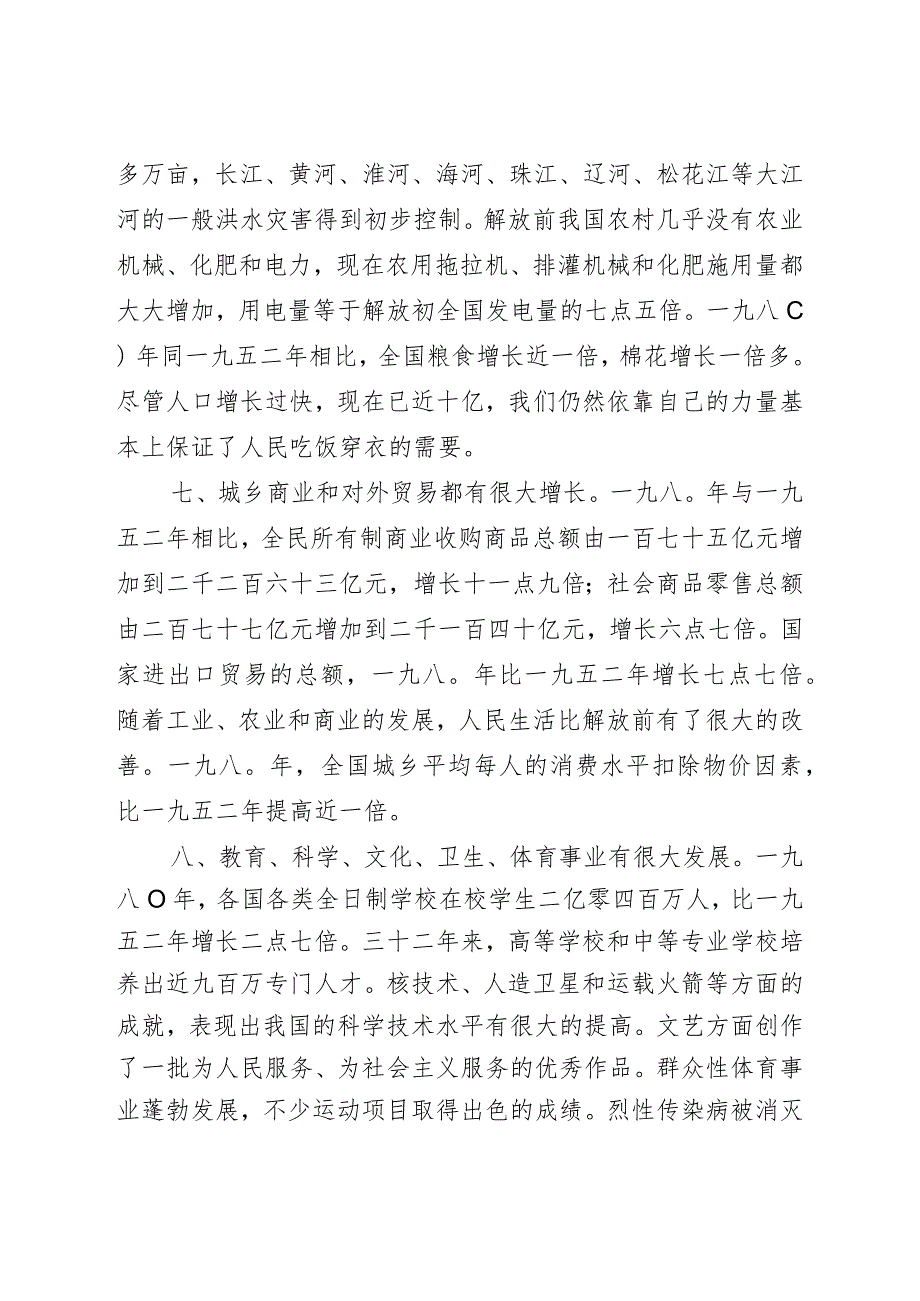 多万亩，长江、黄河、淮河、海河、珠江、辽河、松花江等大江
河的一般洪水灾害得到初步控制。解放前我国农村几乎没有农业
机械、化肥和电力，现在农用拖拉机、排灌机械和化肥施用量都
大大增加，用电量等于解放初全国发电量的七点五倍。一九八 C
）年同一九五二年相比，全国粮食增长近一倍，棉花增长一倍多。
尽管人口增长过快，现在已近十亿，我们仍然依靠自己的力量基
本上保证了人民吃饭穿衣的需要。
七、城乡商业和对外贸易都有很大增长。一九八。年与一九
五二年相比，全民所有制商业收购商品总额由一百七十五亿元增
加到二千二百六十三亿元，增长十一点九倍；社会商品零售总额
由二百七十七亿元增加到二千一百四十亿元，增长六点七倍。国
家进出口贸易的总额，一九八。年比一九五二年增长七点七倍。
随着工业、农业和商业的发展，人民生活比解放前有了很大的改
善。一九八。年，全国城乡平均每人的消费水平扣除物价因素，
比一九五二年提高近一倍。
八、教育、科学、文化、卫生、体育事业有很大发展。一九
八 O 年，各国各类全日制学校在校学生二亿零四百万人，比一九
五二年增长二点七倍。三十二年来，高等学校和中等专业学校培
养出近九百万专门人才。核技术、人造卫星和运载火箭等方面的
成就，表现出我国的科学技术水平有很大的提高。文艺方面创作
了一批为人民服务、为社会主义服务的优秀作品。群众性体育事
业蓬勃发展，不少运动项目取得出色的成绩。烈性传染病被消灭